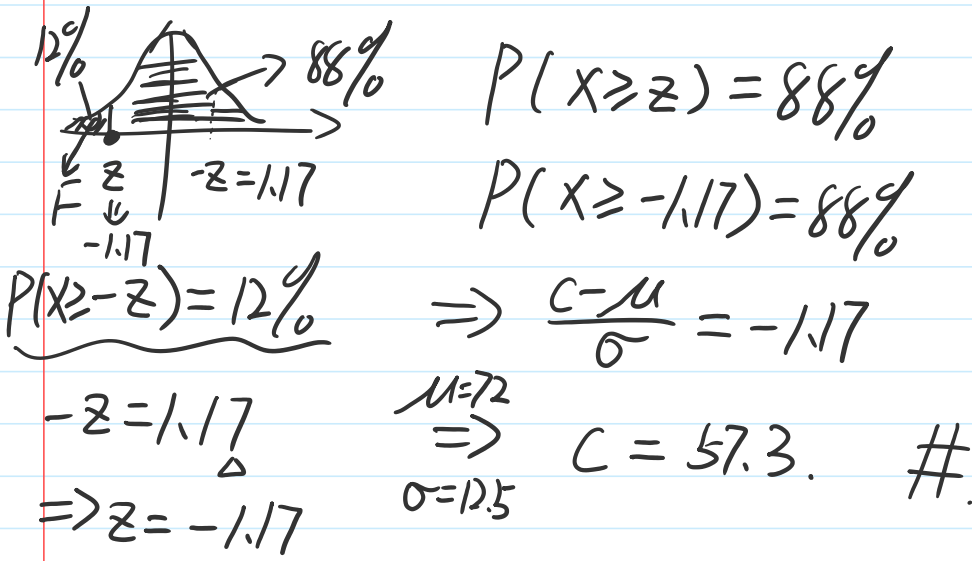 12%
88%
F
z
⇓
-1.17
-z = 1.17
P(x ≥ -z) = 12%
-z = 1.17
⇒ z = -1.17
P(x ≥ z) = 88%
P(x ≥ -1.17) = 88%
⇒ (c-μ)/σ = -1.17
μ=72
⇒ c = 57.3. #.
σ=12.5